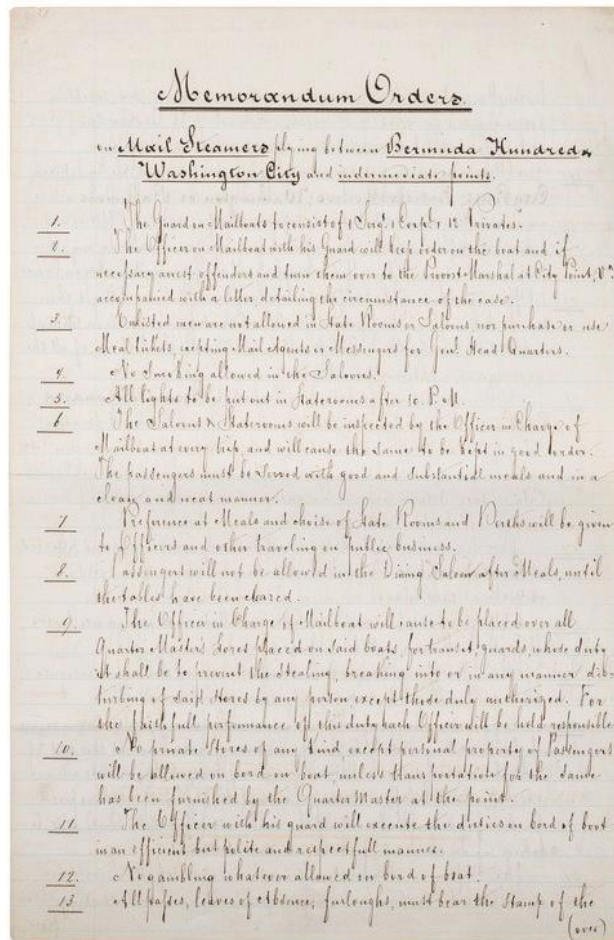 Memorandum Orders
on Mail Steamers plying between Bermuda Hundred &
Washington City and indermediate points.
1. The Guard on Mailboats to consist of 1 Sergt. 1 Corpl. & 12 Privates.
2. The Officer on Mailboat with his Guard will keep order on the boat and if
necessary arrest offenders and turn them over to the Provost Marshal at City Point, Va
accompanied with a letter detailing the circumstance of the case.
3. Enlisted men are not allowed in State Rooms or Saloons, nor purchase or use
Meal tickets, excepting Mail Agents or Messengers for Genl. Head Quarters.
4. No Smoking allowed in the Saloons.
5. All lights to be put out in Staterooms after 10. P. M.
6. The Saloons & Staterooms will be inspected by the Officer in Charge of
Mailboat at every trip, and will cause the same to be kept in good order.
The passengers must be served with good and substantial meals and in a
clean and neat manner.
7 Preference at Meals and choise of State Rooms and Berths will be given
to Officers and other traveling on public business.
8. Passengers will not be allowed in the Dining Saloon after Meals, until
the tables have been cleared.
9. The Officer in Charge of Mailboat will cause to be placed over all
Quarter Master's Stores placed on said boats, for transit, guards, whose duty
it shall be to prevent the stealing, breaking into or in any manner dis-
turbing of said stores by any person except those duly authorized. For
the faithfull performance of this duty each Officer will be held responsible
10. No private Stores of any kind, except personal property of Passengers
will be allowed on bord on boat, unless transportation for the same
has been furnished by the Quarter Master at the point.
11. The Officer with his guard will execute the duties on bord of boat
in an efficient but polite and respectfull manner.
12. No gambling whatever allowed on bord of boat.
13 All passes, leaves of Absence, furloughs, must bear the Stamp of the
(over)